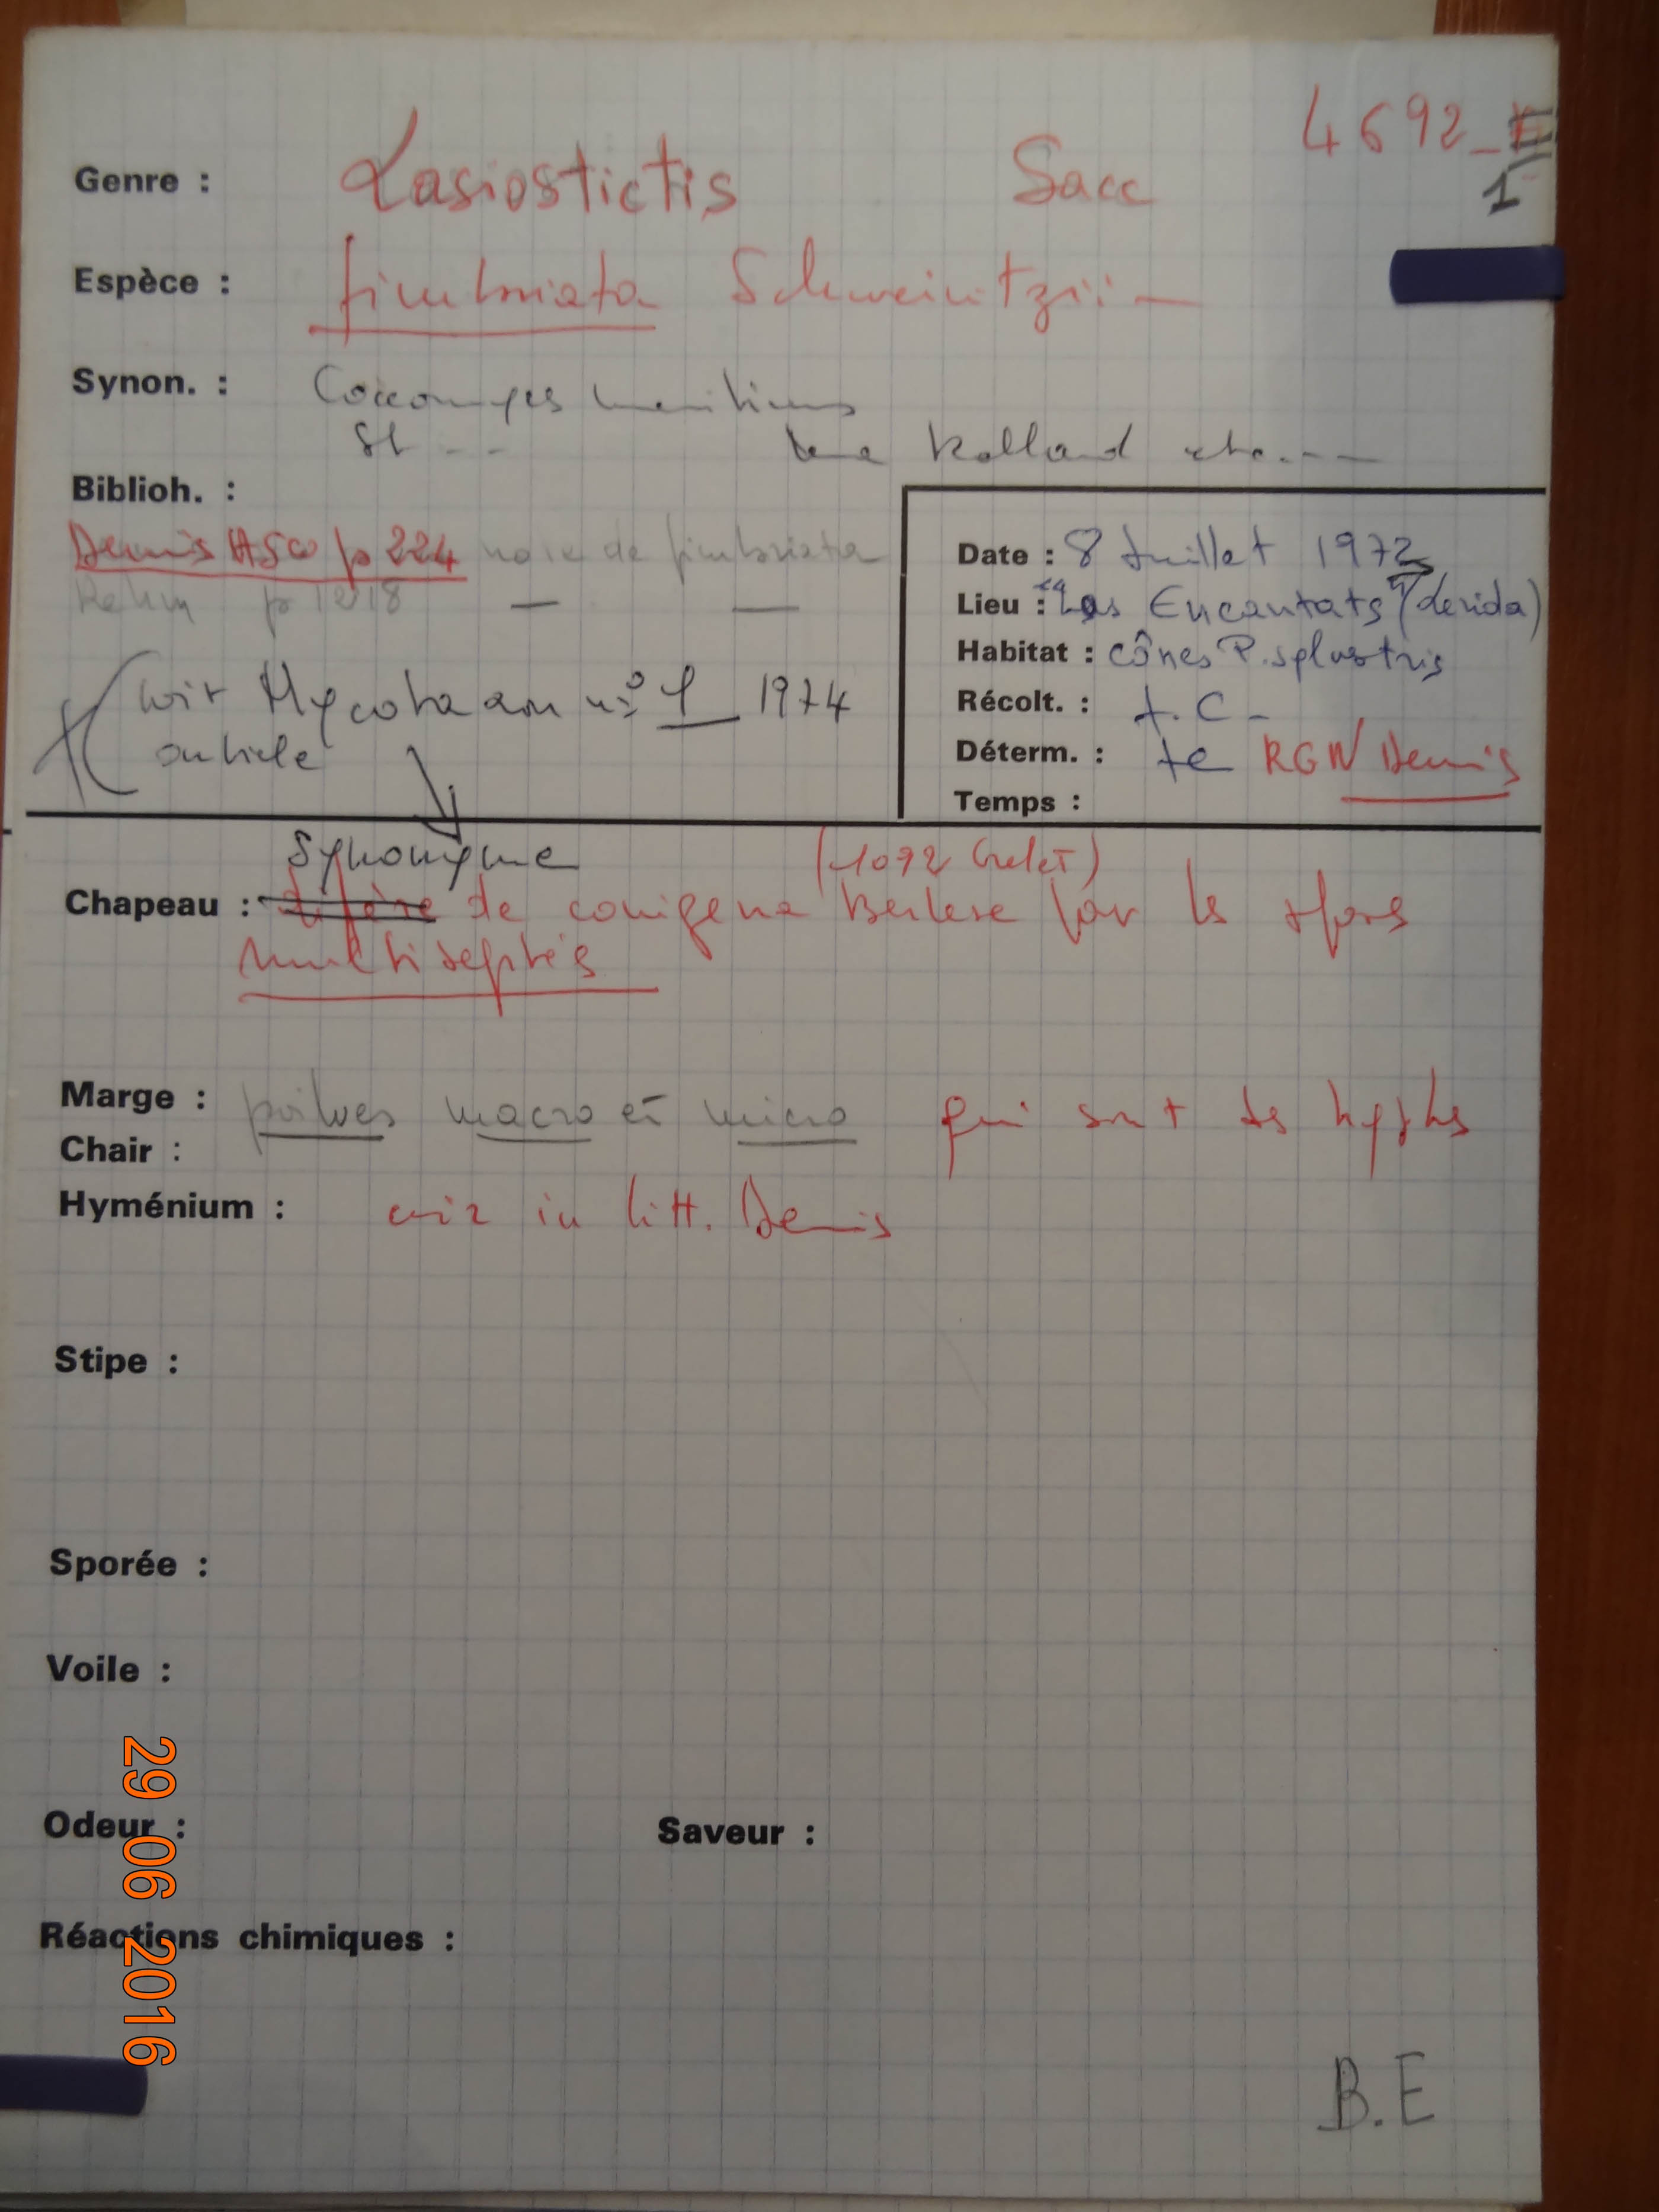 4692_
1
Genre : Lasiostictis Sacc
Espèce : fimbriata Schweintzii —
Synon. : Coccomyces
St - - Rolland etc. ---
Biblioh. :
Dennis ASCO p 224 note de fimbriata
Rehm p 1218 — —
voir Mycotaxon n° 1 1974
article
Date : 8 Juillet 1972
Lieu : "Los Encantats" (Lerida)
Habitat : cônes P. sylvestris
Récolt. : A. C -
Déterm. : te RGW Dennis
Temps :
Synonyme (1072 Grelet)
Chapeau : difère de conigena Berlese par ls spors
multiseptés
Marge : poilues macro et micro qui sont ds hyphs
Chair :
Hyménium : voir in litt. Dennis
Stipe :
Sporée :
Voile :
Odeur : Saveur :
Réactions chimiques :
B.E
29 06 2016